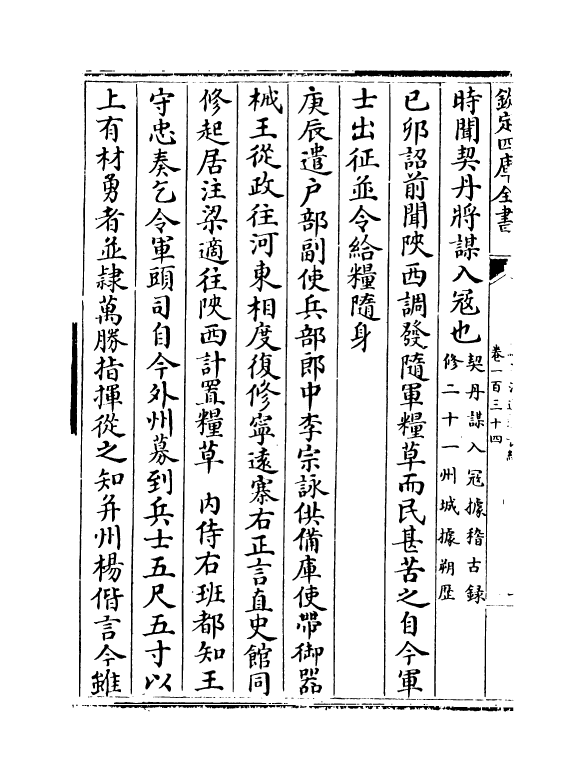 欽定四庫全書
卷一百三十四
時聞契丹將謀入冦也契丹謀入冦據稽古録
修二十一州城據朔歴
己卯詔前聞陜西調發隨軍糧草而民甚苦之自今軍
士出征並令給糧隨身
庚辰遣户部副使兵部郎中李宗詠供備庫使帶御器
械王從政往河東相度復修寧遠寨右正言直史館同
修起居注梁適往陜西計置糧草 内侍右班都知王
守忠奏乞令軍頭司自今外州募到兵士五尺五寸以
上有材勇者並隷萬勝指揮從之知并州楊偕言今雖